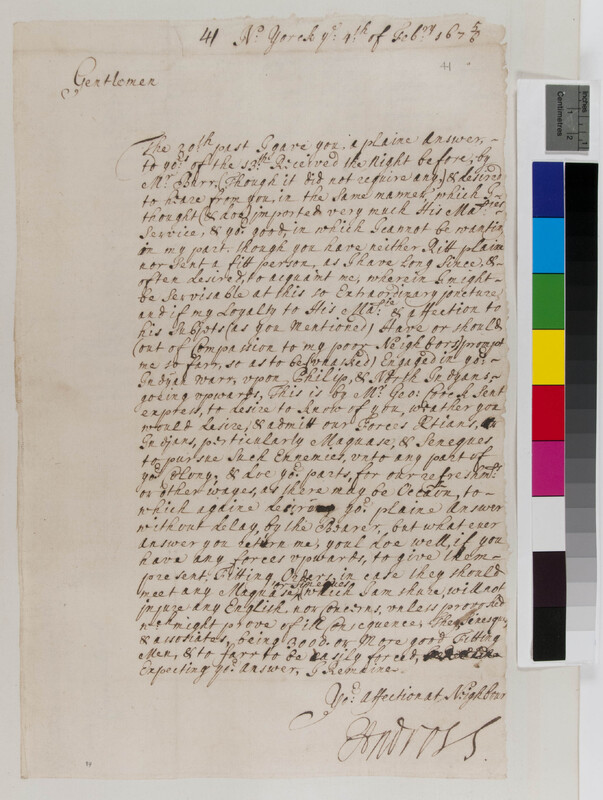 41 No. Yorck ye. 4th of Febry 167 5/6
41
Gentlemen
The 20th past I gave you a plaine Answer,
to yors of the 13th Received the Night before, by
Mr. Burr, (Though it did not require any,) & desired
to heare from you, in the same manner, which I
thought (& now) imported very much His Maties
Service, & yor. good, in which I cannot be wanting
on my part, though you have neither Ritt plaine
nor Sent a fitt person, as I have Long Since, &
often desired, to acquaint me, wherein I might
be Servisable at this so Extraordinary joncture,
and if my Loyalty to His Matie & affection to
his Subjects (as you Mentioned) Have or should
(out of Compassion to my poor Neighbors) prompt
me so farr, so as to be Engaged in yor.
Indyan warr, upon Philip, & North Indyans
going upwards, This is by Mr. Geo: Sent
express, to desire to know of you, weather you
would desire, & admitt our Forces Xtians,
Indyans, particularly Maquase, & Seneques,
to pursue Such Ennemies, unto any part of
yor. Colony, & doe yor. parts, for our refreshmt.
or other wayes, as there may be Occation, to
which againe desiring yor. plaine Answer
without delay, by the Bearer, but what ever
answer you return me, youl doe well, if you
have any forces upwards, to give them
present, Fitting Orders, in case they should
or Sineques
meet any Maquase, which I am shure, will not
injure any English, nor Conserns, unless provoked
wch. might prove of ill Consequence, The Seneques
& assosiates, being 3000. or More good Fitting
Men, & to farr to be easily forced,
Expecting yor. Answer, I Remaine.
Yor: Affectionat, Neighbour
Andross.
Inches
Centimetres
1
2
1